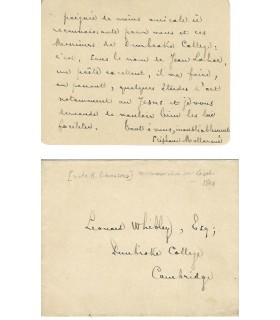 poignée de mains amicale et
reconnaissante pour vous et ces
Messieurs de Pembroke College;
c'est, sous le nom de Jean Lahor,
un poète excellent, il va faire,
en passant, quelques études d'art
notamment au Jesus et je vous
demande de vouloir bien les lui
faciliter. Tout à vous, 
Stéphane Mallarmé
Leonard Whibley, Esq;
Pembroke College
Cambridge